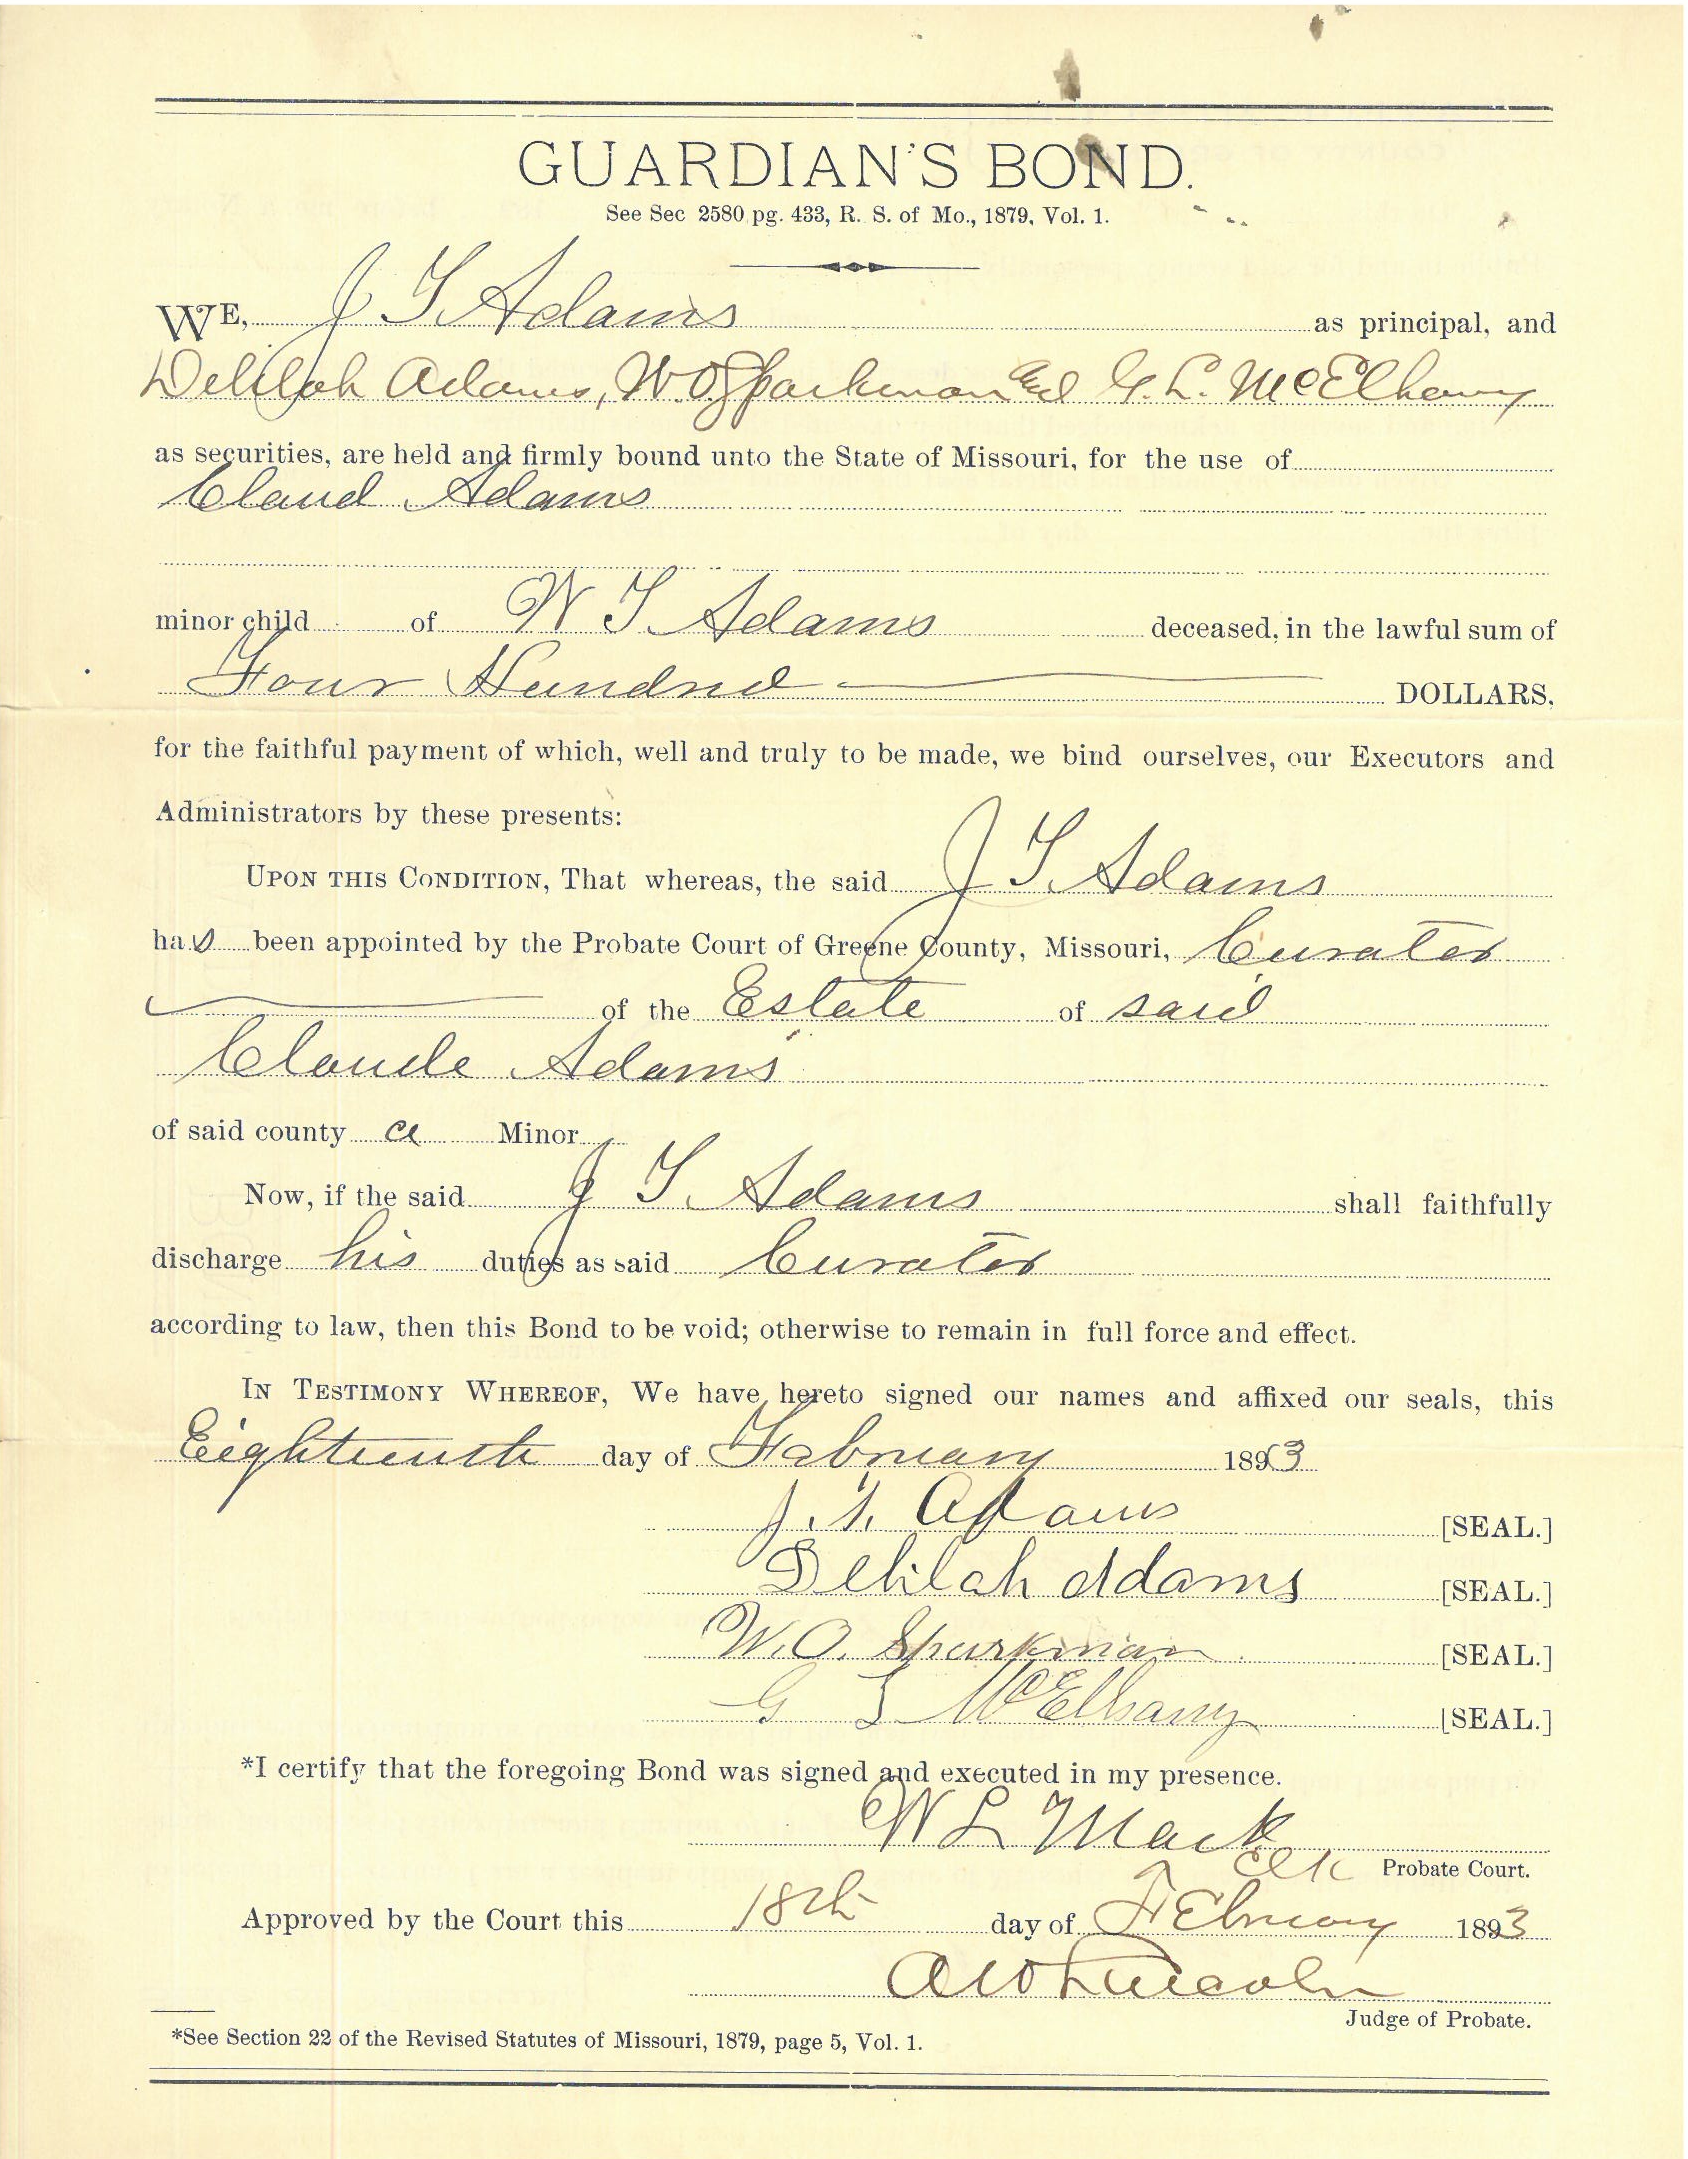 GUARDIAN'S BOND.
See Sec 2580 pg. 433, R. S. of Mo., 1879, Vol. 1.
WE, J T Adams as principal, and
Delilah Adams, W.O. Sparkman and G. L. McElhany
as securities, are held and firmly bound unto the State of Missouri, for the use of
Claud Adams
minor child of W T Adams deceased, in the lawful sum of
Four Hundred DOLLARS,
for the faithful payment of which, well and truly to be made, we bind ourselves, our Executors and
Administrators by these presents:
UPON THIS CONDITION, That whereas, the said J T Adams
has been appointed by the Probate Court of Greene County, Missouri, Curator
of the Estate of said
Claude Adams
of said county a Minor
Now, if the said J T Adams shall faithfully
discharge his duties as said Curator
according to law, then this Bond to be void; otherwise to remain in full force and effect.
IN TESTIMONY WHEREOF, We have hereto signed our names and affixed our seals, this
Eighteenth day of February 1893
J. T. Adams [SEAL.]
Delilah Adams [SEAL.]
W. O. Sparkman [SEAL.]
G L McElhany [SEAL.]
*I certify that the foregoing Bond was signed and executed in my presence.
W L Mack
Clk Probate Court.
Approved by the Court this 18th day of February 1893
A W Lincoln
Judge of Probate.
*See Section 22 of the Revised Statutes of Missouri, 1879, page 5, Vol. 1.